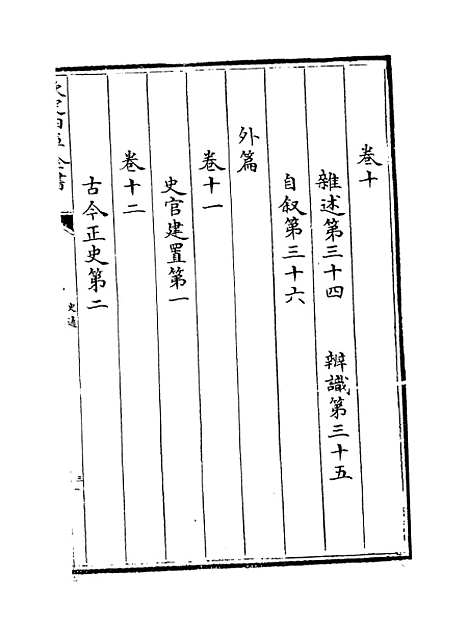 卷十
雜述第三十四　辨識第三十五
自叙第三十六
外篇
卷十一
史官建置第一
卷十二
古今正史第二
史通